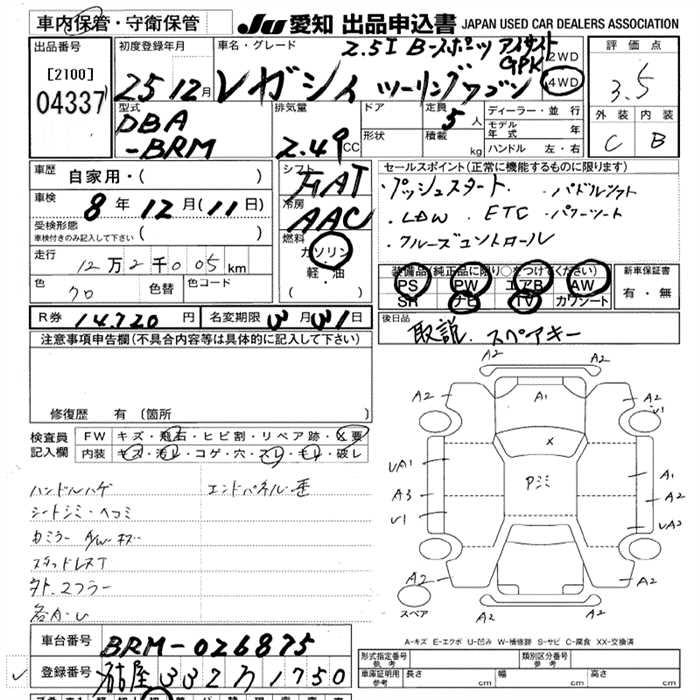 車内保管・守衛保管
JU 愛知 出品申込書 JAPAN USED CAR DEALERS ASSOCIATION
出品番号
[2100]
04337
初度登録年月
25 12月
車名・グレード
2.5I B-スポーツ アイサイト
GPK
レガシィ ツーリングワゴン
2WD
4WD
評価点
3.5
外装 内装
C B
型式
DBA
-BRM
排気量
2.49 CC
ドア
形状
定員
5人
積載
kg
ディーラー・並行
モデル年式 年
ハンドル 左・右
車歴
自家用・( )
車検
8年 12月(11日)
受検形態
車検付きのみ記入して下さい ( )
走行
12万2千005km
色
クロ
色替
色コード
シフト
FAT
冷房
AAC
燃料
ガソリン
軽・油
( )
セールスポイント(正常に機能するものに限ります)
・プッシュスタート ・パドルシフト
・LDW ・ETC ・パワーシート
・クルーズコントロール
装備品(純正品に限り○をつけてください)
PS PW エアB AW
SR ナビ TV カワシート
新車保証書
有・無
R券 14,720円
名変期限 3月31日
後日品
取説、スペアキー
注意事項申告欄(不具合内容等は具体的に記入して下さい)
修復歴 有 [箇所 ]
検査員
記入欄
FW キズ・飛石・ヒビ割・リペア跡・X要
内装 キズ・汚レ・コゲ・穴・スレ・キレ・破レ
ハンドルハゲ
エンドパネル歪
シートシミ・ヘコミ
カミラー A/W キズ
スタッドレスT
外、マフラー
各A・U
A2
A2
A2
A1
A2
U1
X
UA1
Pミミ
A1
A3
A2
U1
UA2
A2
A2
A2
スペア
A-キズ E-エクボ U-凹み W-補修跡 S-サビ C-腐食 XX-交換済
車台番号
BRM-026875
登録番号
332 1750
形式指定番号
参考
類別区分番号
参考
車庫証明用
参考
長さ cm
幅 cm
高さ cm